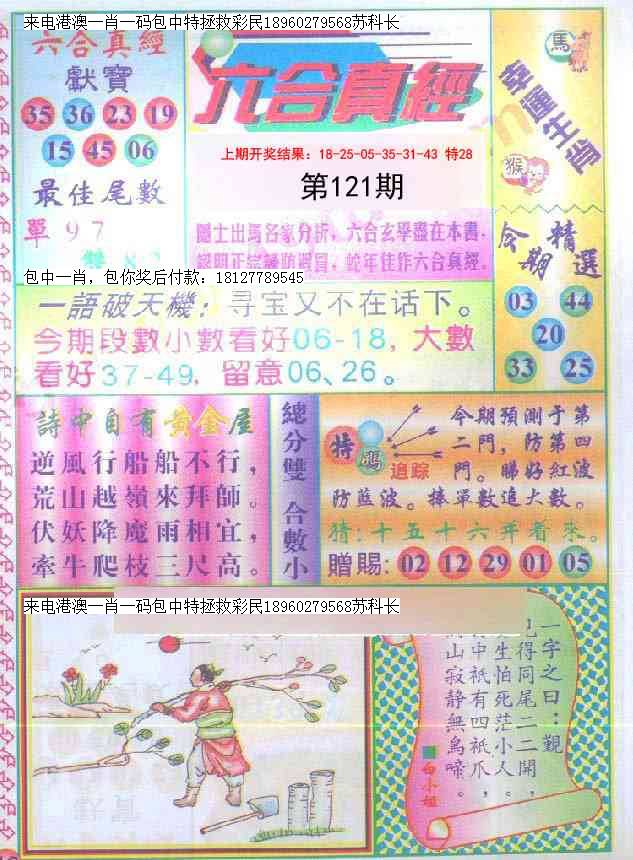 来电港澳一肖一码包中特拯救彩民18960279568苏科长
六合真經
獻寶
35 36 23 19
15 45 06
最佳尾數
單 9 7
六合真經
上期开奖结果: 18-25-05-35-31-43 特28
第121期
隱士出馬名家分析，六合玄學盡在本書，
蛇年佳作六合真經.
馬
幸運生肖
猴
今期精選
03 44
20
33 25
包中一肖，包你奖后付款: 18127789545
一語破天機: 寻宝又不在话下。
今期段數小數看好06-18, 大數
看好37-49, 留意06、26。
詩中自有黄金屋
逆風行船船不行，
荒山越嶺來拜師。
伏妖降魔雨相宜，
牽牛爬枝三尺高。
總分雙 合數小
特碼
追踪
今期預測于第
二門，防第四
門。睇好紅波
防藍波。捧單數追大數。
猜: 十五十六开着来。
贈賜: 02 12 29 01 05
来电港澳一肖一码包中特拯救彩民18960279568苏科长
一字之曰: 觀
得同尾二二開，
生怕死茫小人。
中祇有四祇爪，
山寂静無鳥啼。
白小姐